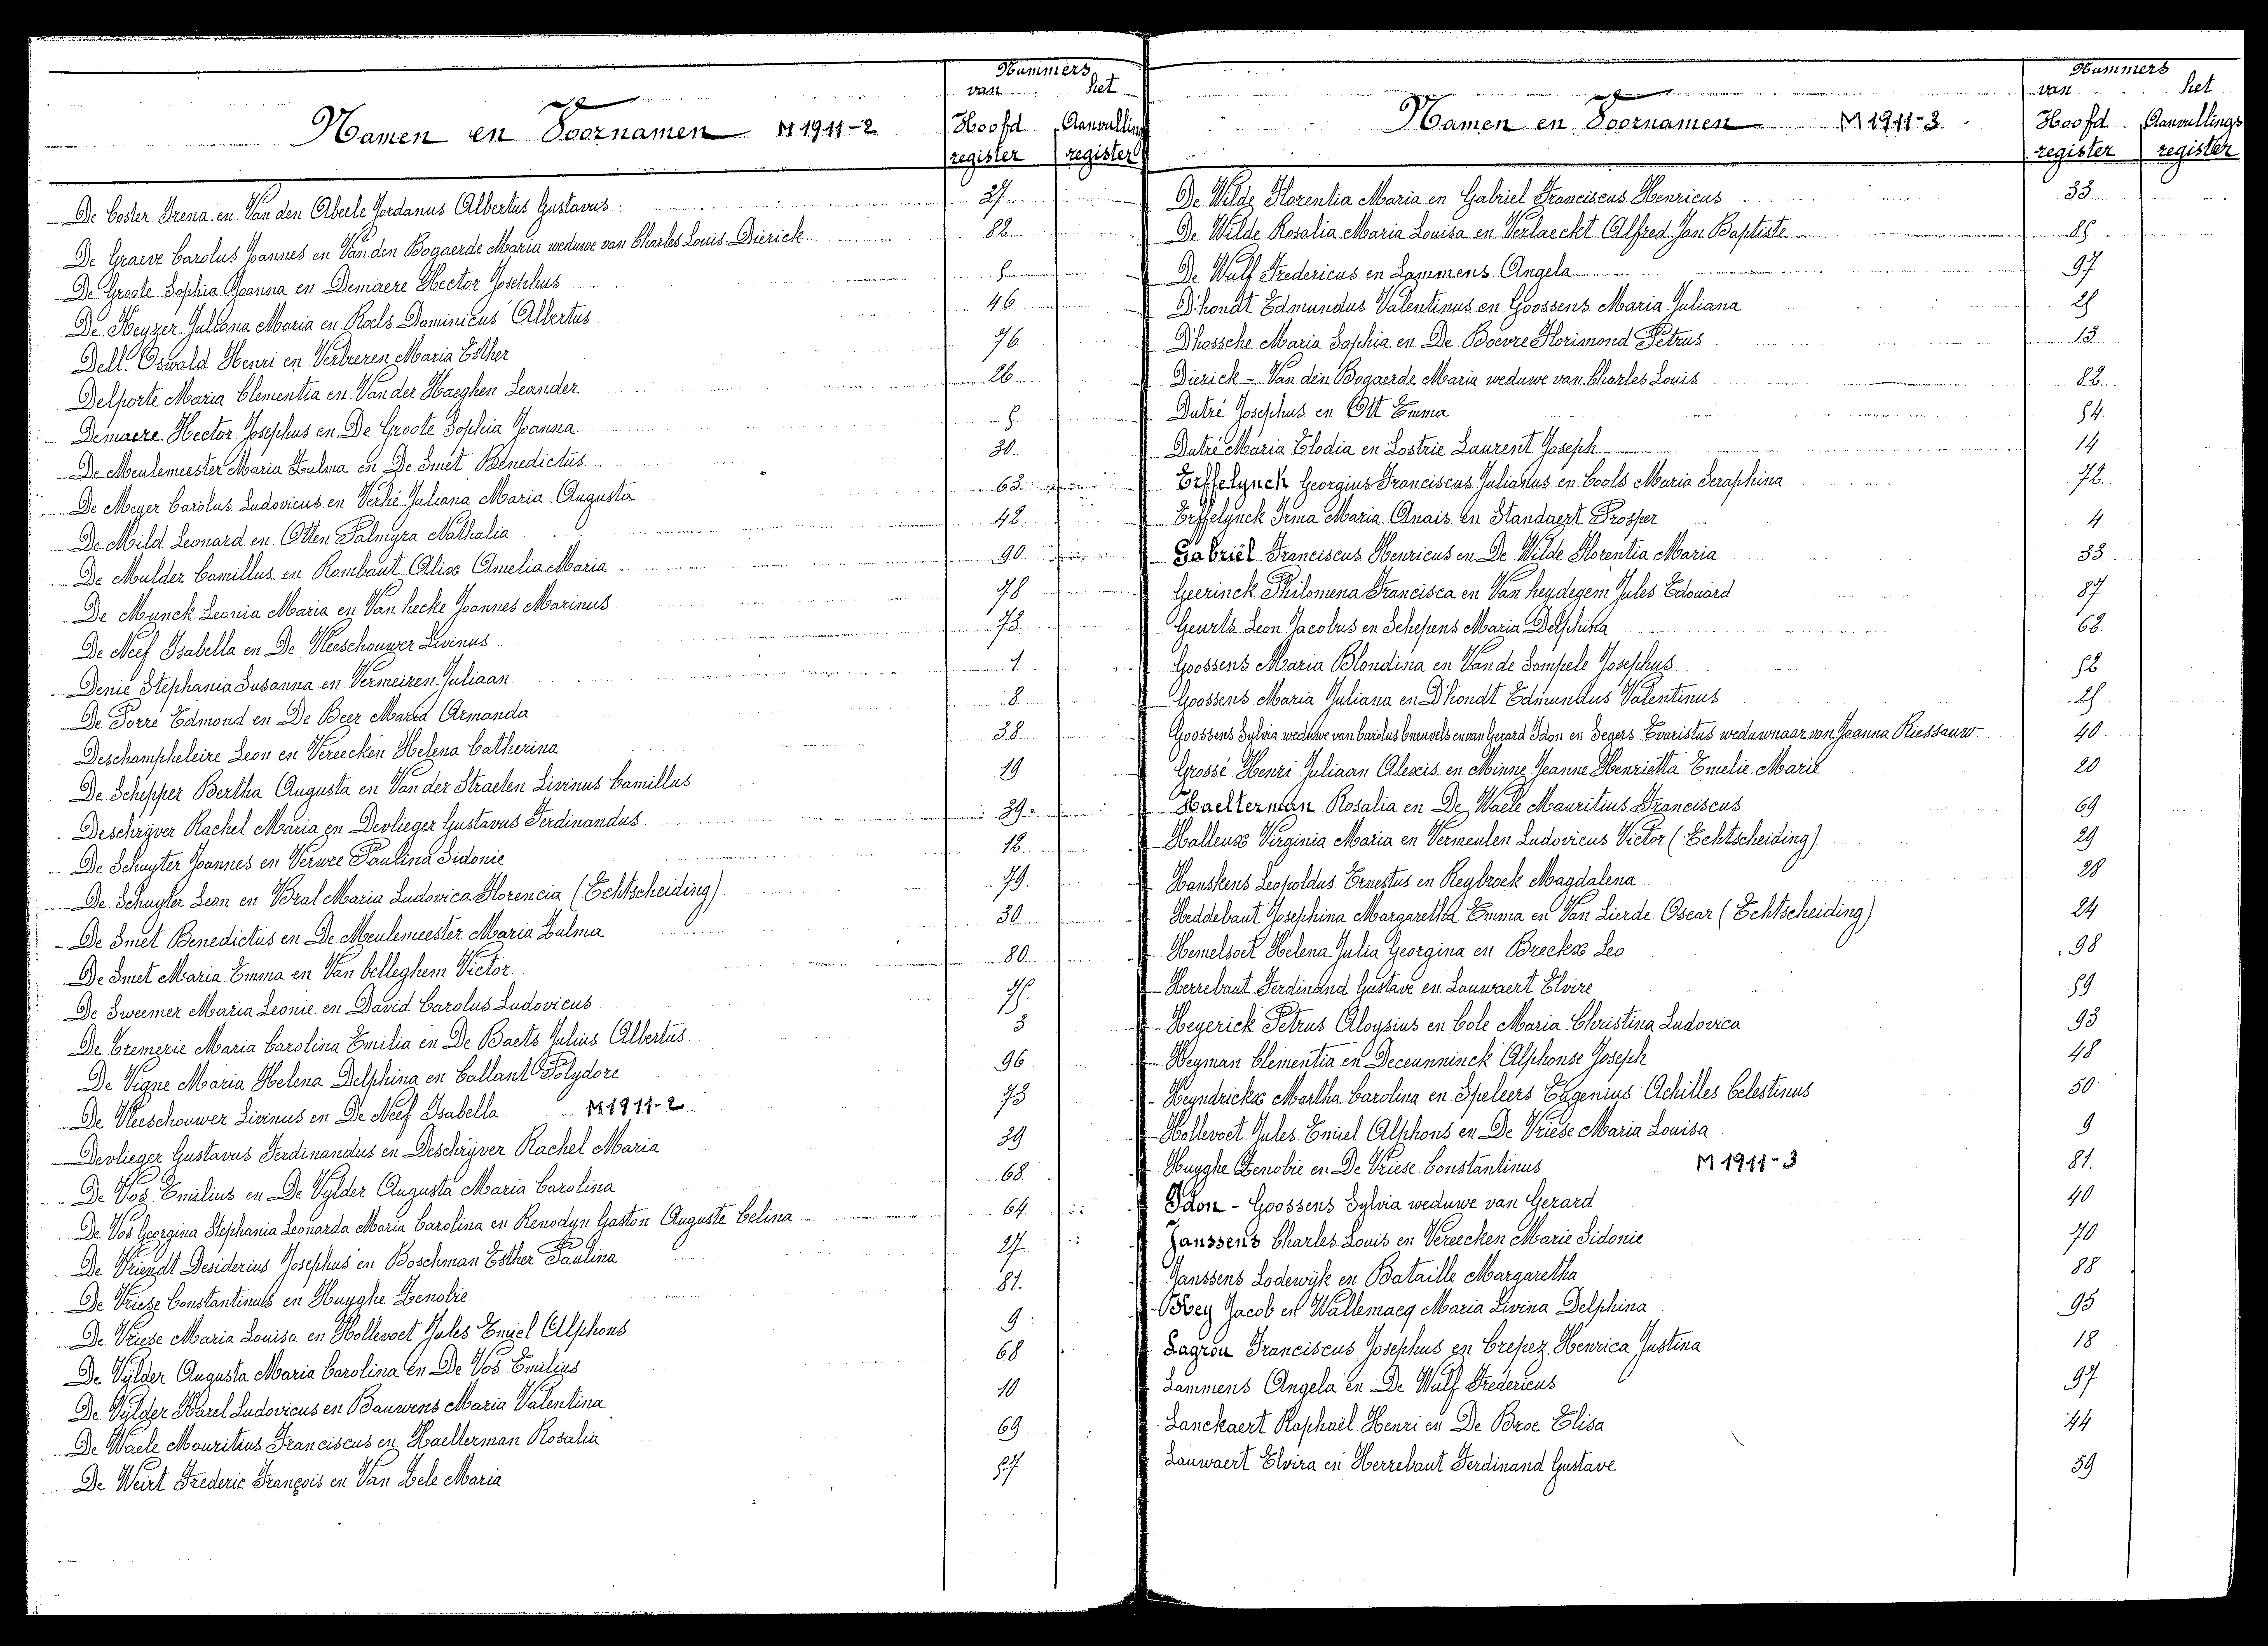 Nummers
van het
Namen en Voornamen M 1911-2
Hoofd register Aanvullings register
De Coster Irena en Van den Abeele Jordanus Albertus Gustavus 37
De Graeve Carolus Joannes en Van den Bogaerde Maria weduwe van Charles Louis Dierick 82
De Groote Sophia Joanna en Demaere Hector Josephus 5
De Keyzer Juliana Maria en Roels Dominicus Albertus 46
Dell Oswald Henri en Verbreren Maria Esther 76
Delporte Maria Clementia en Van der Haeghen Leander 26
Demaere Hector Josephus en De Groote Sophia Joanna 5
De Meulemeester Maria Zulma en De Smet Benedictus 30
De Meyer Carolus Ludovicus en Verhé Juliana Maria Augusta 63
De Mild Leonard en Otten Palmyra Nathalia 42
De Mulder Camillus en Rombaut Alix Amelia Maria 90
De Munck Leonia Maria en Van hecke Joannes Marinus 78
De Neef Isabella en De Vleeschouwer Livinus 73
Denie Stephania Susanna en Vermeiren Juliaan 1
De Porre Edmond en De Beer Maria Armanda 8
Deschampheleire Leon en Vereecken Helena Catherina 38
De Schepper Bertha Augusta en Van der Straelen Livinus Camillus 19
Deschrijver Rachel Maria en Devlieger Gustavus Ferdinandus 39
De Schuyter Joannes en Verwee Paulina Sidonie 12
De Schuyter Leon en Bral Maria Ludovica Florencia (Echtscheiding) 79
De Smet Benedictus en De Meulemeester Maria Zulma 30
De Smet Maria Emma en Van belleghem Victor 80
De Sweemer Maria Leonie en David Carolus Ludovicus 75
De Tremerie Maria Carolina Emilia en De Baets Julius Albertus 3
De Vigne Maria Helena Delphina en Callant Polydore 96
De Vleeschouwer Livinus en De Neef Isabella M 1911-2 73
Devlieger Gustavus Ferdinandus en Deschrijver Rachel Maria 39
De Vos Emilius en De Vylder Augusta Maria Carolina 68
De Vos Georgina Stephania Leonarda Maria Carolina en Renodyn Gaston Auguste Celina 64
De Vriendt Desiderius Josephus en Boschman Esther Paulina 27
De Vriese Constantinus en Huyghe Zenobie 81
De Vriese Maria Louisa en Hollevoet Jules Emiel Alphons 9
De Vylder Augusta Maria Carolina en De Vos Emilius 68
De Vylder Karel Ludovicus en Bauwens Maria Valentina 10
De Waele Mauritius Franciscus en Haelterman Rosalia 69
De Weirt Frederic François en Van Zele Maria 57
Nummers
van het
Namen en Voornamen M 1911-3
Hoofd register Aanvullings register
De Wilde Florentia Maria en Gabriel Franciscus Henricus 33
De Wilde Rosalia Maria Louisa en Verlaeckt Alfred Jan Baptiste 85
De Wulf Fredericus en Lammens Angela 97
D'hondt Edmundus Valentinus en Goossens Maria Juliana 25
D'hossche Maria Sophia en De Boevre Florimond Petrus 13
Dierick - Van den Bogaerde Maria weduwe van Charles Louis 82
Dutré Josephus en Ott Emma 54
Dutré Maria Elodia en Lostrie Laurent Joseph 14
Erffelynck Georgius Franciscus Julianus en Cools Maria Seraphina 72
Erffelynck Irma Maria Anais en Standaert Prosper 4
Gabriël Franciscus Henricus en De Wilde Florentia Maria 33
Geerinck Philomena Francisca en Van heydegem Jules Edouard 87
Geurts Leon Jacobus en Schepens Maria Delphina 62
Goossens Maria Blondina en Van de Sompele Josephus 52
Goossens Maria Juliana en D'hondt Edmundus Valentinus 25
Goossens Sylvia weduwe van Carolus Cneuvels en van Gerard Idon en Segers Evaristus weduwnaar van Joanna Riessauw 40
Grossé Henri Juliaan Alexis en Minne Jeanne Henrietta Emelie Marie 20
Haelterman Rosalia en De Waele Mauritius Franciscus 69
Halleux Virginia Maria en Vermeulen Ludovicus Victor (Echtscheiding) 29
Hanskens Leopoldus Ernestus en Reybroek Magdalena 28
Heddebaut Josephina Margaretha Emma en Van Lierde Oscar (Echtscheiding) 24
Hemelsoet Helena Julia Georgina en Breckx Leo 98
Herrebaut Ferdinand Gustave en Lauwaert Elvire 59
Heyerick Petrus Aloysius en Cole Maria Christina Ludovica 93
Heyman Clementia en Deceunninck Alphonse Joseph 48
Heyndrickx Martha Carolina en Speleers Eugenius Achilles Celestinus 50
Hollevoet Jules Emiel Alphons en De Vriese Maria Louisa 9
Huyghe Zenobie en De Vriese Constantinus M 1911-3 81
Idon - Goossens Sylvia weduwe van Gerard 40
Janssens Charles Louis en Vereecken Marie Sidonie 70
Janssens Lodewijk en Bataille Margaretha 88
Key Jacob en Wallemacq Maria Livina Delphina 95
Lagrou Franciscus Josephus en Crepez Henrica Justina 18
Lammens Angela en De Wulf Fredericus 97
Lanckaert Raphaël Henri en De Broe Elisa 44
Lauwaert Elvira en Herrebaut Ferdinand Gustave 59